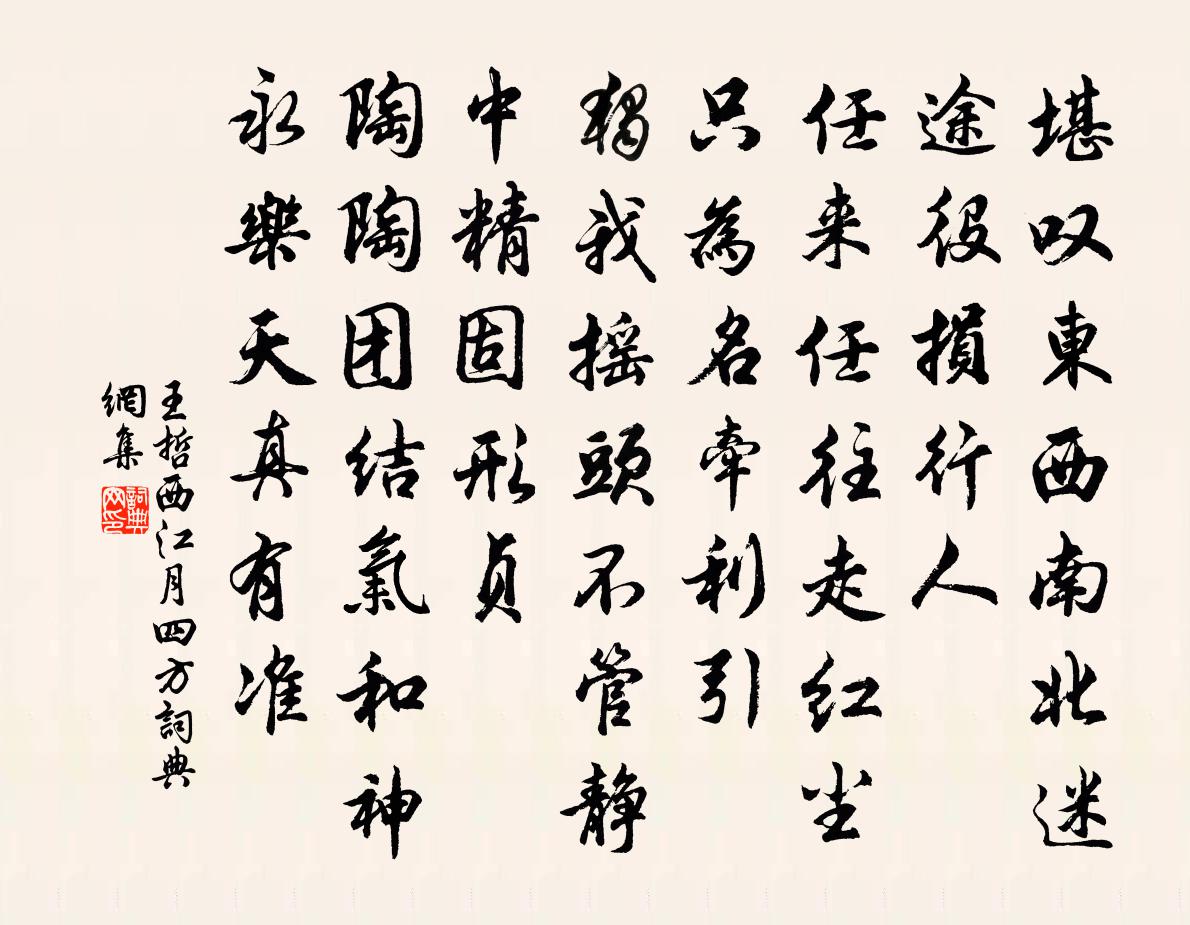 堪叹東西南北迷
途役損行人
任来任往走红尘
只為名牵利引
獨我摇頭不管静
中精固形贞
陶陶团结氣和神
永樂天真有准
王哲西江月四方詞典
網集
詞典
网印